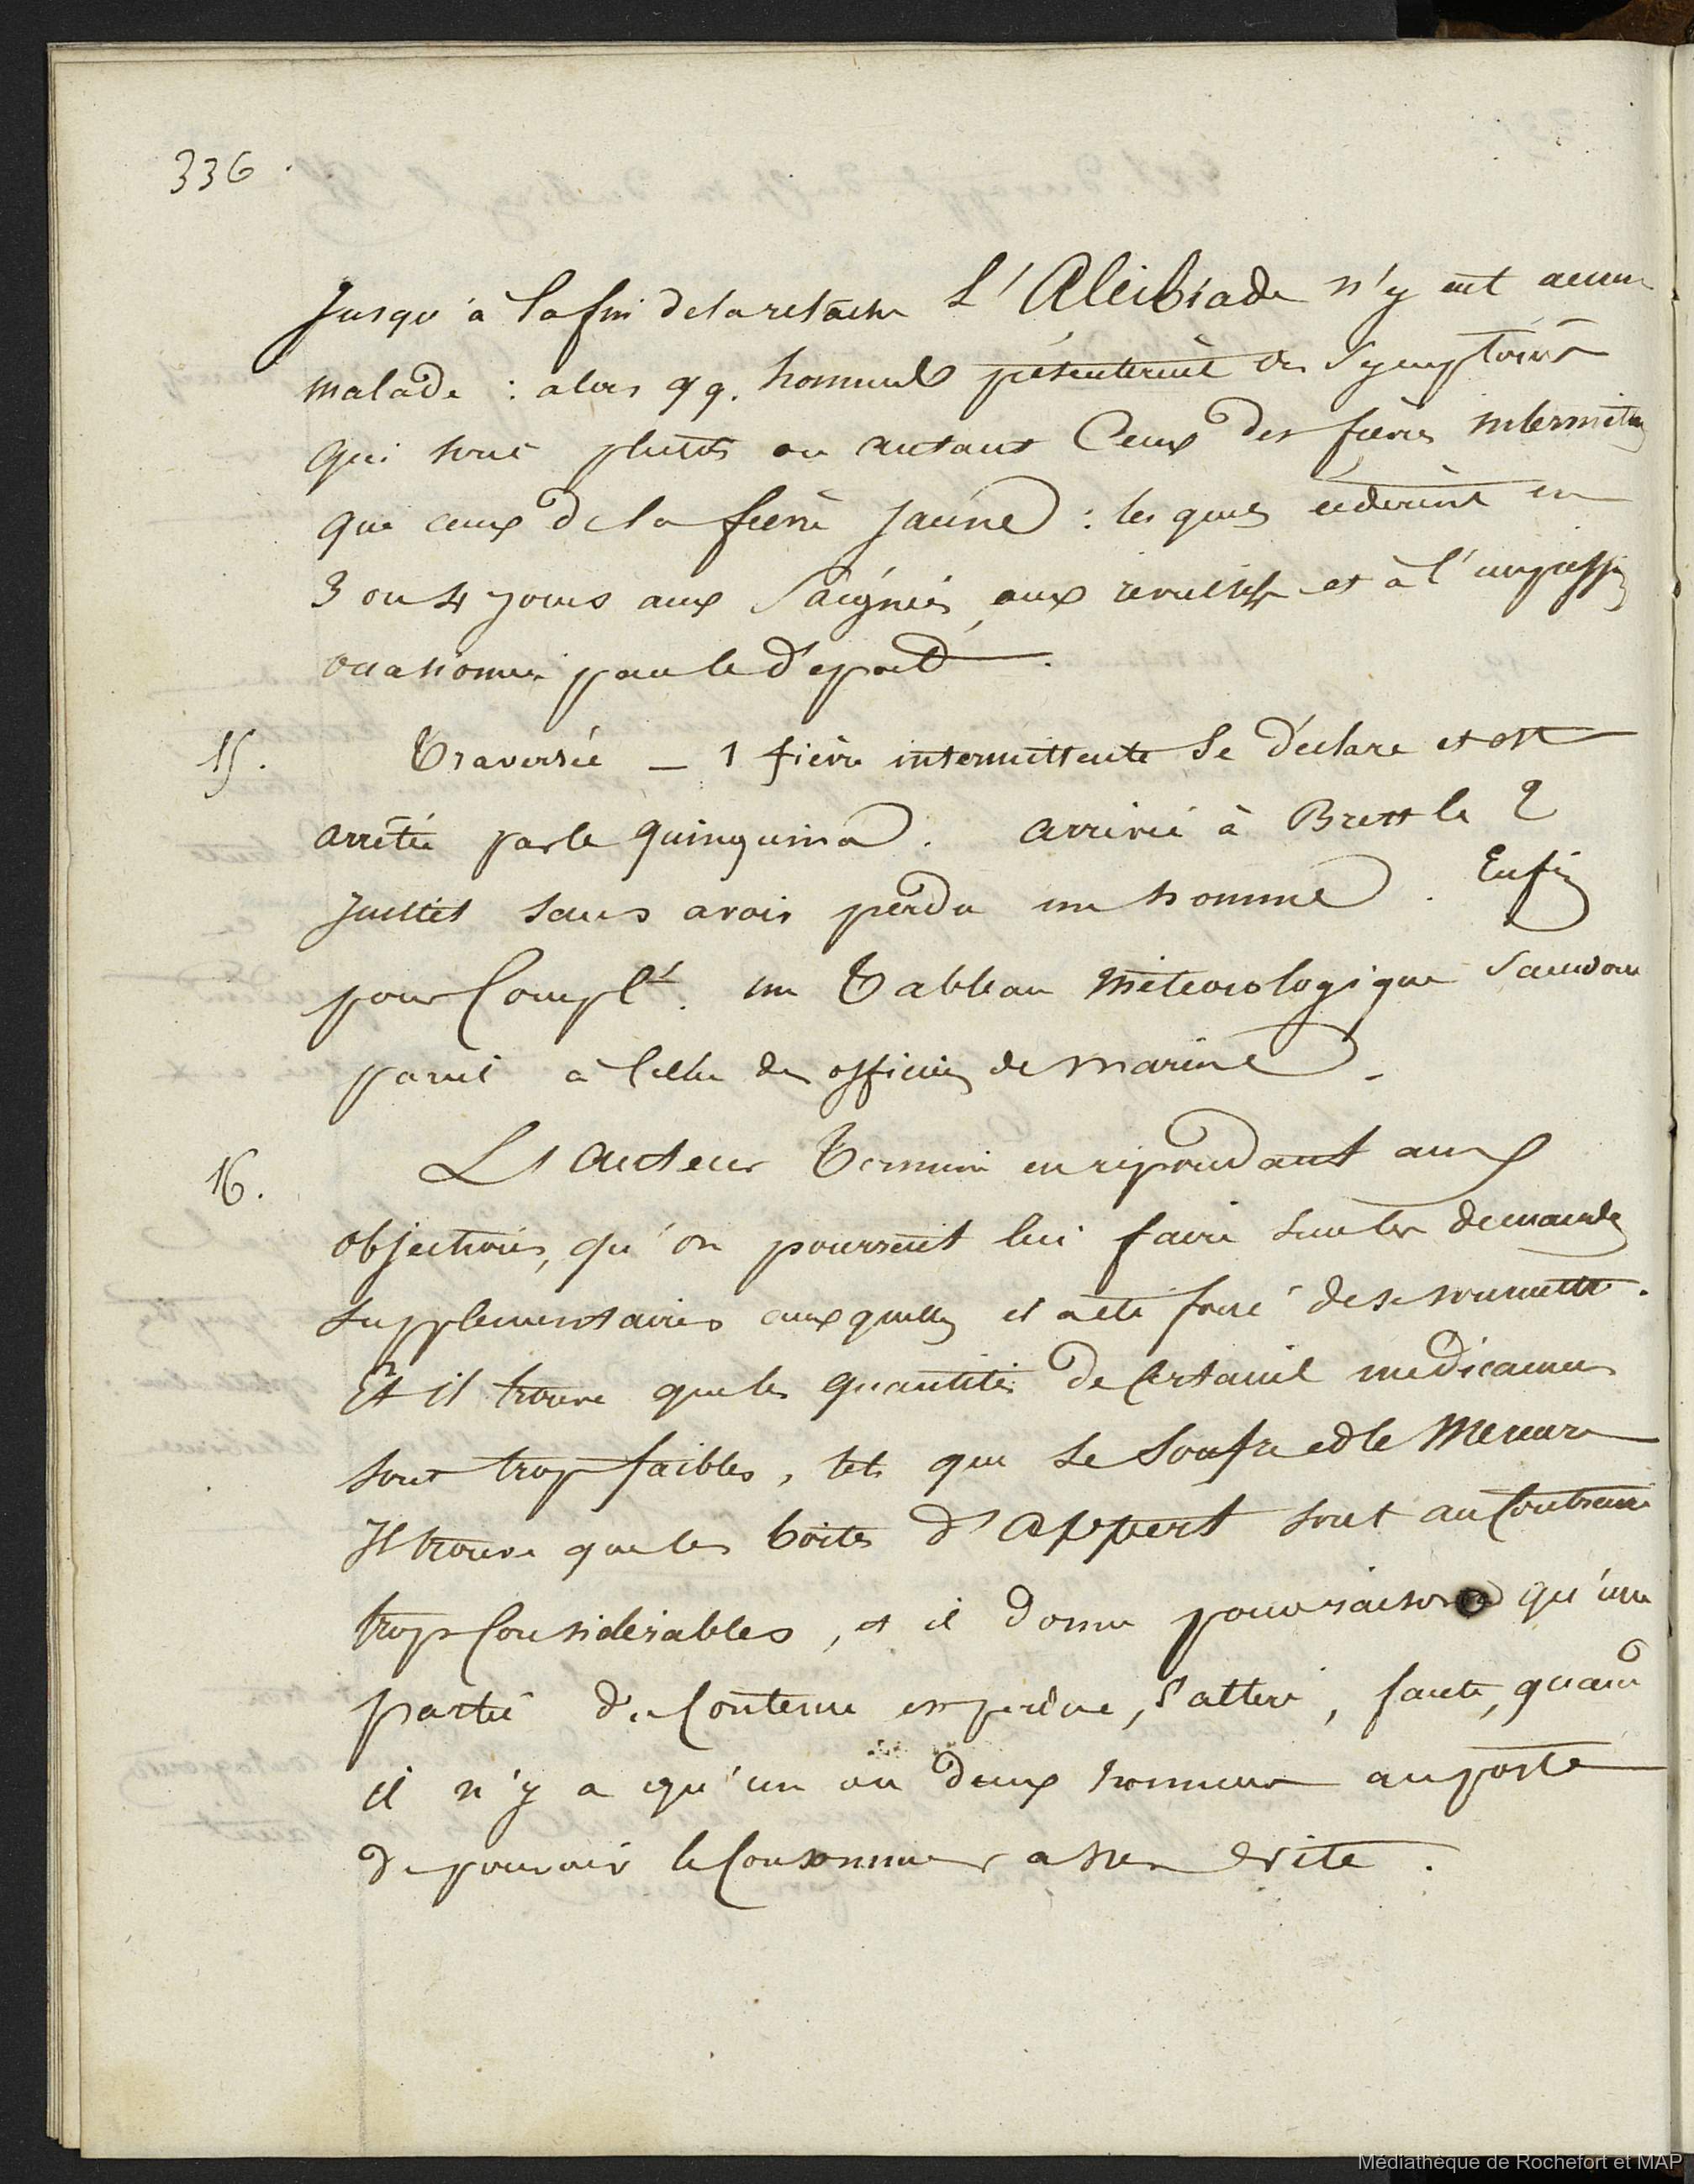 336.
Jusqu'à la fin de la relâche L'Alcibiade n'y eut aucun
malade : alors qq. hommes présenterent des symptômes
qui sont plutôt ou autant Ceux des fièvres intermitt
que ceux de la fièvre jaune : lesquels céderent en
3 ou 4 jours aux Saignées, aux revulsifs et à l'impression
occasionnée par le départ.
15. Traversée — 1 fièvre intermittente se déclare et est
arrêtée par le quinquina. arrivée à Brest le 2
juillet sans avoir perdu un homme. Enfin
pour Complt. un Tableau Météorologique
pareil à Celui des officiers de marine.
16. L'Auteur Termine en repondant aux
objections, qu'on pourrait lui faire sur les demandes
supplementaires auxquelles il a été forcé de se soumettre.
Et il trouve que les quantités de Certains médicamens
sont trop faibles, tels que le Soufre et le Mercure
Il trouve que les boites d'Appert sont au Contraire
trop Considérables, et il donne pour raison qu'une
partie du Contenu est perdue, s'altere, faute, quand
il n'y a qu'un ou deux hommes au poste
de pouvoir le Consommer assez vite.
Médiathèque de Rochefort et MAP